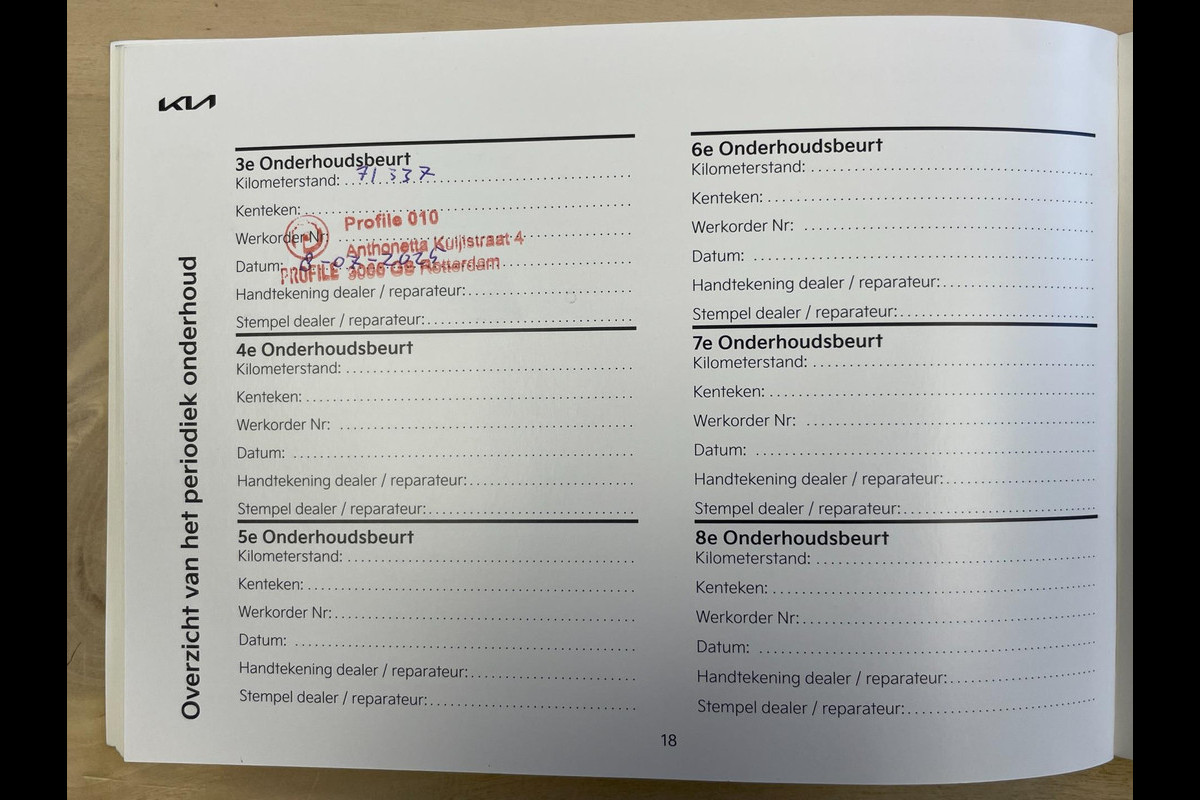 KIA
Overzicht van het periodiek onderhoud
3e Onderhoudsbeurt
Kilometerstand: 71337
Kenteken:
Werkorder Nr:
Datum: 8-07-2025
Handtekening dealer / reparateur:
Stempel dealer / reparateur:
Profile 010
Anthonetta Kuijlstraat 4
PROFILE 3066 GS Rotterdam
4e Onderhoudsbeurt
Kilometerstand:
Kenteken:
Werkorder Nr:
Datum:
Handtekening dealer / reparateur:
Stempel dealer / reparateur:
5e Onderhoudsbeurt
Kilometerstand:
Kenteken:
Werkorder Nr:
Datum:
Handtekening dealer / reparateur:
Stempel dealer / reparateur:
6e Onderhoudsbeurt
Kilometerstand:
Kenteken:
Werkorder Nr:
Datum:
Handtekening dealer / reparateur:
Stempel dealer / reparateur:
7e Onderhoudsbeurt
Kilometerstand:
Kenteken:
Werkorder Nr:
Datum:
Handtekening dealer / reparateur:
Stempel dealer / reparateur:
8e Onderhoudsbeurt
Kilometerstand:
Kenteken:
Werkorder Nr:
Datum:
Handtekening dealer / reparateur:
Stempel dealer / reparateur:
18